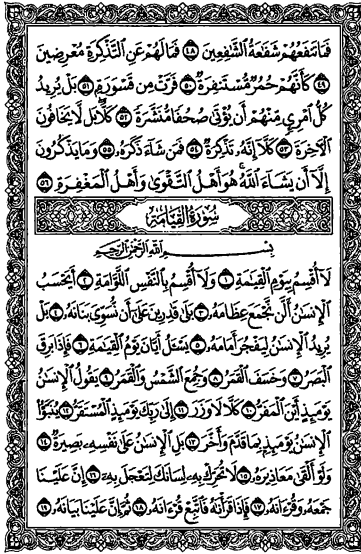 فَمَا تَنفَعُهُمْ شَفَٰعَةُ ٱلشَّٰفِعِينَ ٤٨ فَمَا لَهُمْ عَنِ ٱلتَّذْكِرَةِ مُعْرِضِينَ
٤٩ كَأَنَّهُمْ حُمُرٌ مُّسْتَنفِرَةٌ ٥٠ فَرَّتْ مِن قَسْوَرَةٍ ٥١ بَلْ يُرِيدُ
كُلُّ ٱمْرِئٍ مِّنْهُمْ أَن يُؤْتَىٰ صُحُفًا مُّنَشَّرَةً ٥٢ كَلَّا بَل لَّا يَخَافُونَ
ٱلْآخِرَةَ ٥٣ كَلَّا إِنَّهُۥ تَذْكِرَةٌ ٥٤ فَمَن شَاءَ ذَكَرَهُۥ ٥٥ وَمَا يَذْكُرُونَ
إِلَّا أَن يَشَاءَ ٱللَّهُ هُوَ أَهْلُ ٱلتَّقْوَىٰ وَأَهْلُ ٱلْمَغْفِرَةِ ٥٦
سُورَةُ ٱلْقِيَامَةِ
بِسْمِ ٱللَّهِ ٱلرَّحْمَٰنِ ٱلرَّحِيمِ
لَا أُقْسِمُ بِيَوْمِ ٱلْقِيَٰمَةِ ١ وَلَا أُقْسِمُ بِٱلنَّفْسِ ٱللَّوَّامَةِ ٢ أَيَحْسَبُ
ٱلْإِنسَٰنُ أَلَّن نَّجْمَعَ عِظَامَهُۥ ٣ بَلَىٰ قَٰدِرِينَ عَلَىٰ أَن نُّسَوِّيَ بَنَانَهُۥ ٤ بَلْ
يُرِيدُ ٱلْإِنسَٰنُ لِيَفْجُرَ أَمَامَهُۥ ٥ يَسْـَٔلُ أَيَّانَ يَوْمُ ٱلْقِيَٰمَةِ ٦ فَإِذَا بَرِقَ
ٱلْبَصَرُ ٧ وَخَسَفَ ٱلْقَمَرُ ٨ وَجُمِعَ ٱلشَّمْسُ وَٱلْقَمَرُ ٩ يَقُولُ ٱلْإِنسَٰنُ
يَوْمَئِذٍ أَيْنَ ٱلْمَفَرُّ ١٠ كَلَّا لَا وَزَرَ ١١ إِلَىٰ رَبِّكَ يَوْمَئِذٍ ٱلْمُسْتَقَرُّ ١٢ يُنَبَّؤُا
ٱلْإِنسَٰنُ يَوْمَئِذٍ بِمَا قَدَّمَ وَأَخَّرَ ١٣ بَلِ ٱلْإِنسَٰنُ عَلَىٰ نَفْسِهِۦ بَصِيرَةٌ ١٤
وَلَوْ أَلْقَىٰ مَعَاذِيرَهُۥ ١٥ لَا تُحَرِّكْ بِهِۦ لِسَانَكَ لِتَعْجَلَ بِهِۦ ١٦ إِنَّ عَلَيْنَا
جَمْعَهُۥ وَقُرْءَانَهُۥ ١٧ فَإِذَا قَرَأْنَٰهُ فَٱتَّبِعْ قُرْءَانَهُۥ ١٨ ثُمَّ إِنَّ عَلَيْنَا بَيَانَهُۥ ١٩